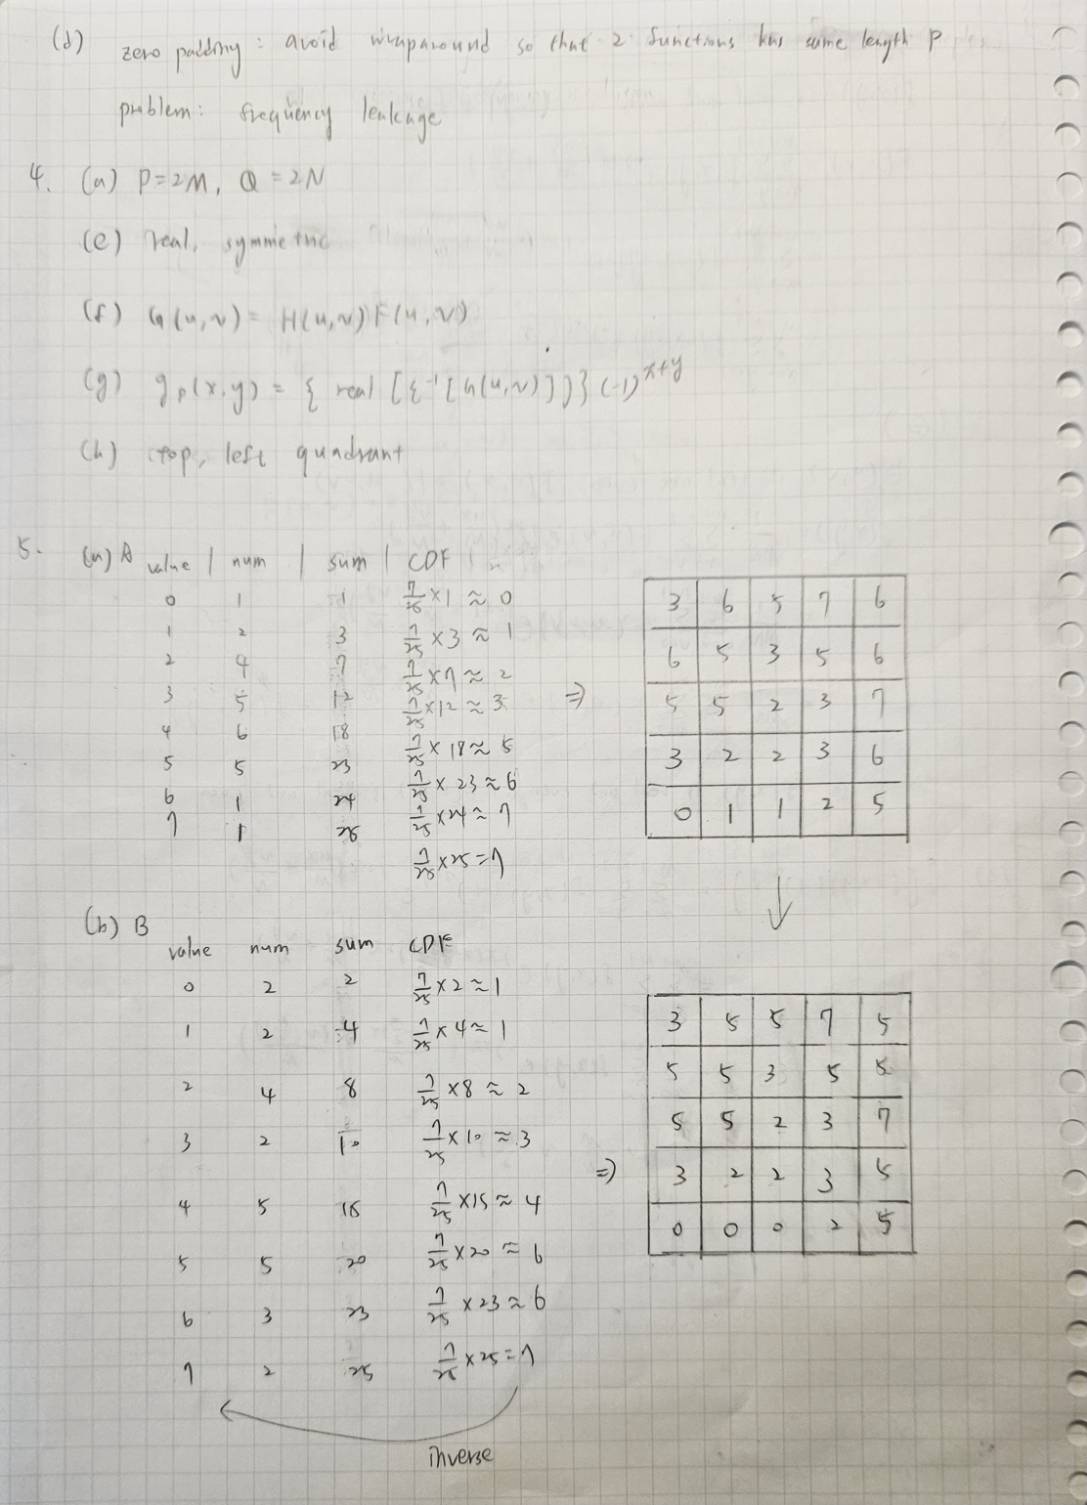 (d) zero padding : avoid wraparound so that 2 functions has same length P
problem: frequency leakage
4. (a) P=2M, Q=2N
(e) real, symmetric
(f) G(u,v) = H(u,v)F(u,v)
(g) gp(x,y) = { real [ξ⁻¹[G(u,v)]]} (-1)^x+y
(h) top, left quadrant
5. (a) A value | num | sum | CDF
0 1 1 7/25 ×1 ≈ 0
1 2 3 7/25 ×3 ≈ 1
2 4 7 7/25 ×7 ≈ 2
3 5 12 7/25 ×12 ≈ 3
4 6 18 7/25 ×18 ≈ 5
5 5 23 7/25 × 23 ≈ 6
6 1 24 7/25 ×24 ≈ 7
7 1 25 7/25 ×25 = 7
⇒
3 6 5 7 6
6 5 3 5 6
5 5 2 3 7
3 2 2 3 6
0 1 1 2 5
(b) B
value num sum CDF
0 2 2 7/25 ×2 ≈ 1
1 2 4 7/25 ×4 ≈ 1
2 4 8 7/25 ×8 ≈ 2
3 2 10 7/25 ×10 ≈ 3
4 5 15 7/25 ×15 ≈ 4
5 5 20 7/25 ×20 ≈ 6
6 3 23 7/25 ×23 ≈ 6
7 2 25 7/25 ×25 = 7
inverse
⇒
3 5 5 7 5
5 5 3 5 5
5 5 2 3 7
3 2 2 3 5
0 0 0 2 5